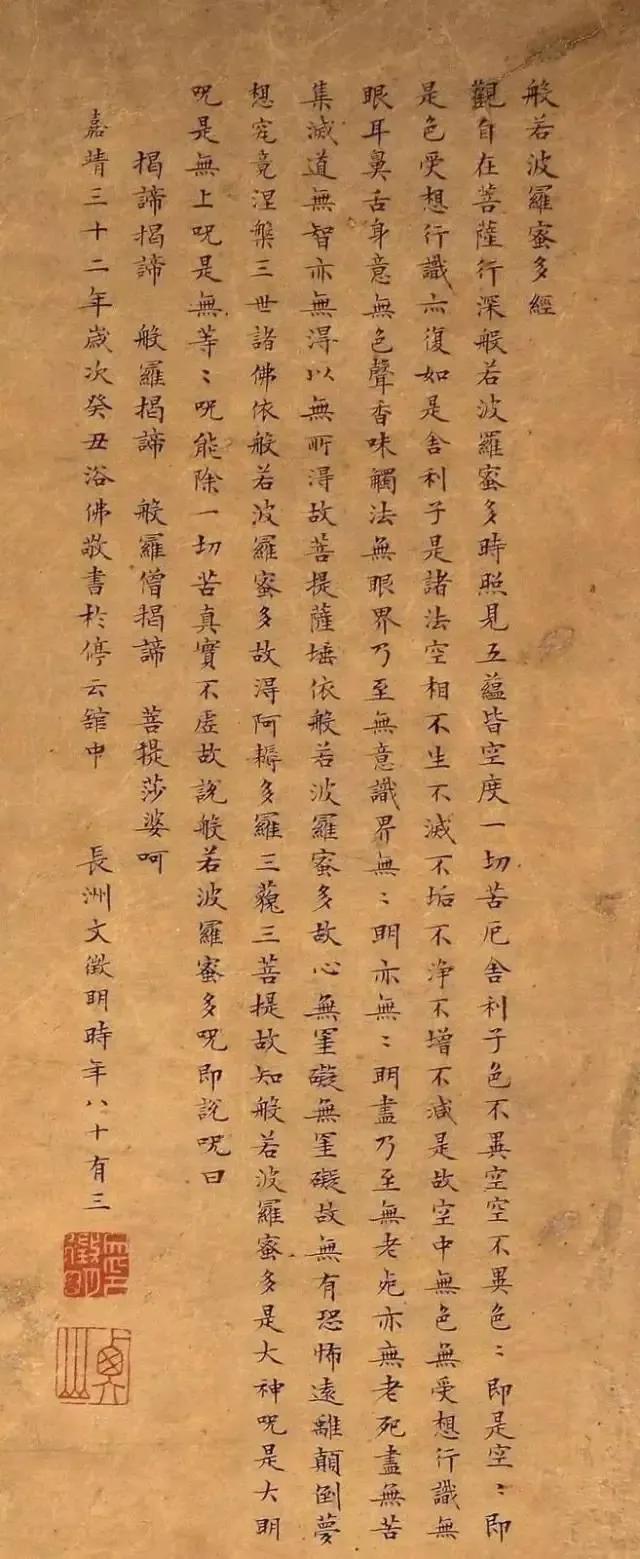 般若波羅蜜多經
觀自在菩薩行深般若波羅蜜多時照見五蘊皆空度一切苦厄舍利子色不異空空不異色〻即是空〻即
是色受想行識亦復如是舍利子是諸法空相不生不滅不垢不淨不增不減是故空中無色無受想行識無
眼耳鼻舌身意無色聲香味觸法無眼界乃至無意識界無〻明亦無〻明盡乃至無老死亦無老死盡無苦
集滅道無智亦無得以無所得故菩提薩埵依般若波羅蜜多故心無罣礙無罣礙故無有恐怖遠離顛倒夢
想究竟涅槃三世諸佛依般若波羅蜜多故得阿耨多羅三藐三菩提故知般若波羅蜜多是大神呪是大明
呪是無上呪是無等〻呪能除一切苦真實不虛故說般若波羅蜜多呪即說呪曰
揭諦揭諦　般羅揭諦　般羅僧揭諦　菩提莎婆呵
嘉靖三十二年歲次癸丑浴佛敬書於停云館中　長洲文徵明時年八十有三